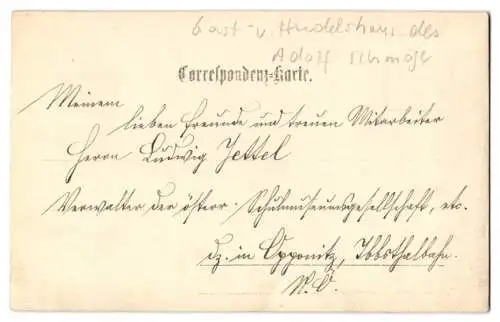 Gast- u. Handelshaus des
Adolf Schmögl
Correspondenz-Karte.
Meinem
lieben Freunde und treuen Mitarbeiter
Herrn Ludwig Jettel
Verwalter der österr. Schulmuseumsgesellschaft, etc.
dz. in Opponitz, Ybbsthalbahn.
N.Ö.